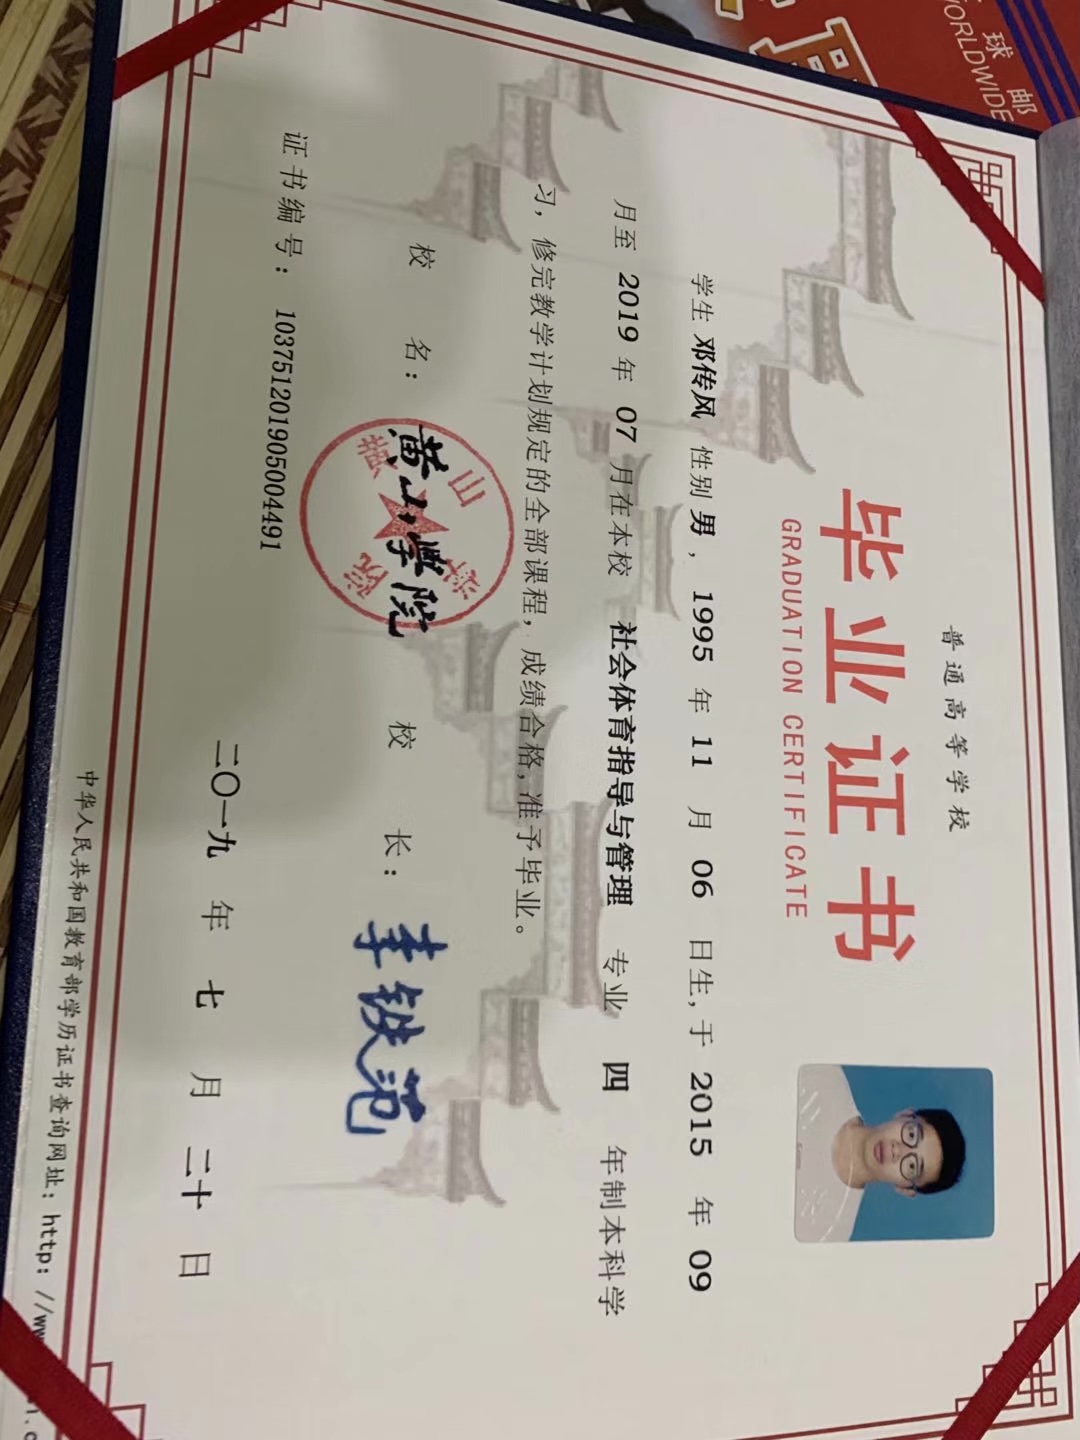 球邮
WORLDWIDE
普通高等学校
毕业证书
GRADUATION CERTIFICATE
学生 邓传风 性别 男，1995 年 11 月 06 日生，于 2015 年 09
月至 2019 年 07 月在本校 社会体育指导与管理 专业 四 年制本科学
习，修完教学计划规定的全部课程，成绩合格，准予毕业。
校 名：黄山学院
黄山学院
校 长：
证书编号：103751201905004491
二〇一九 年 七 月 二十 日
中华人民共和国教育部学历证书查询网址：http：//ww